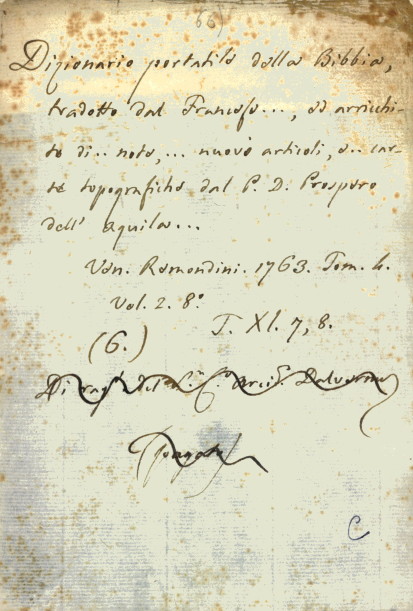 66)
Dizionario portatile della Bibbia,
tradotto dal Francese..., ed arricchi-
to di.. note,... nuovi articoli, e.. car-
te topografiche dal P. D. Prospero
dell' Aquila...
Ven. Remondini. 1763. Tom. 4.
Vol. 2. 8º
T. XI. 7, 8.
(6.)
Di del Dalvermo
C